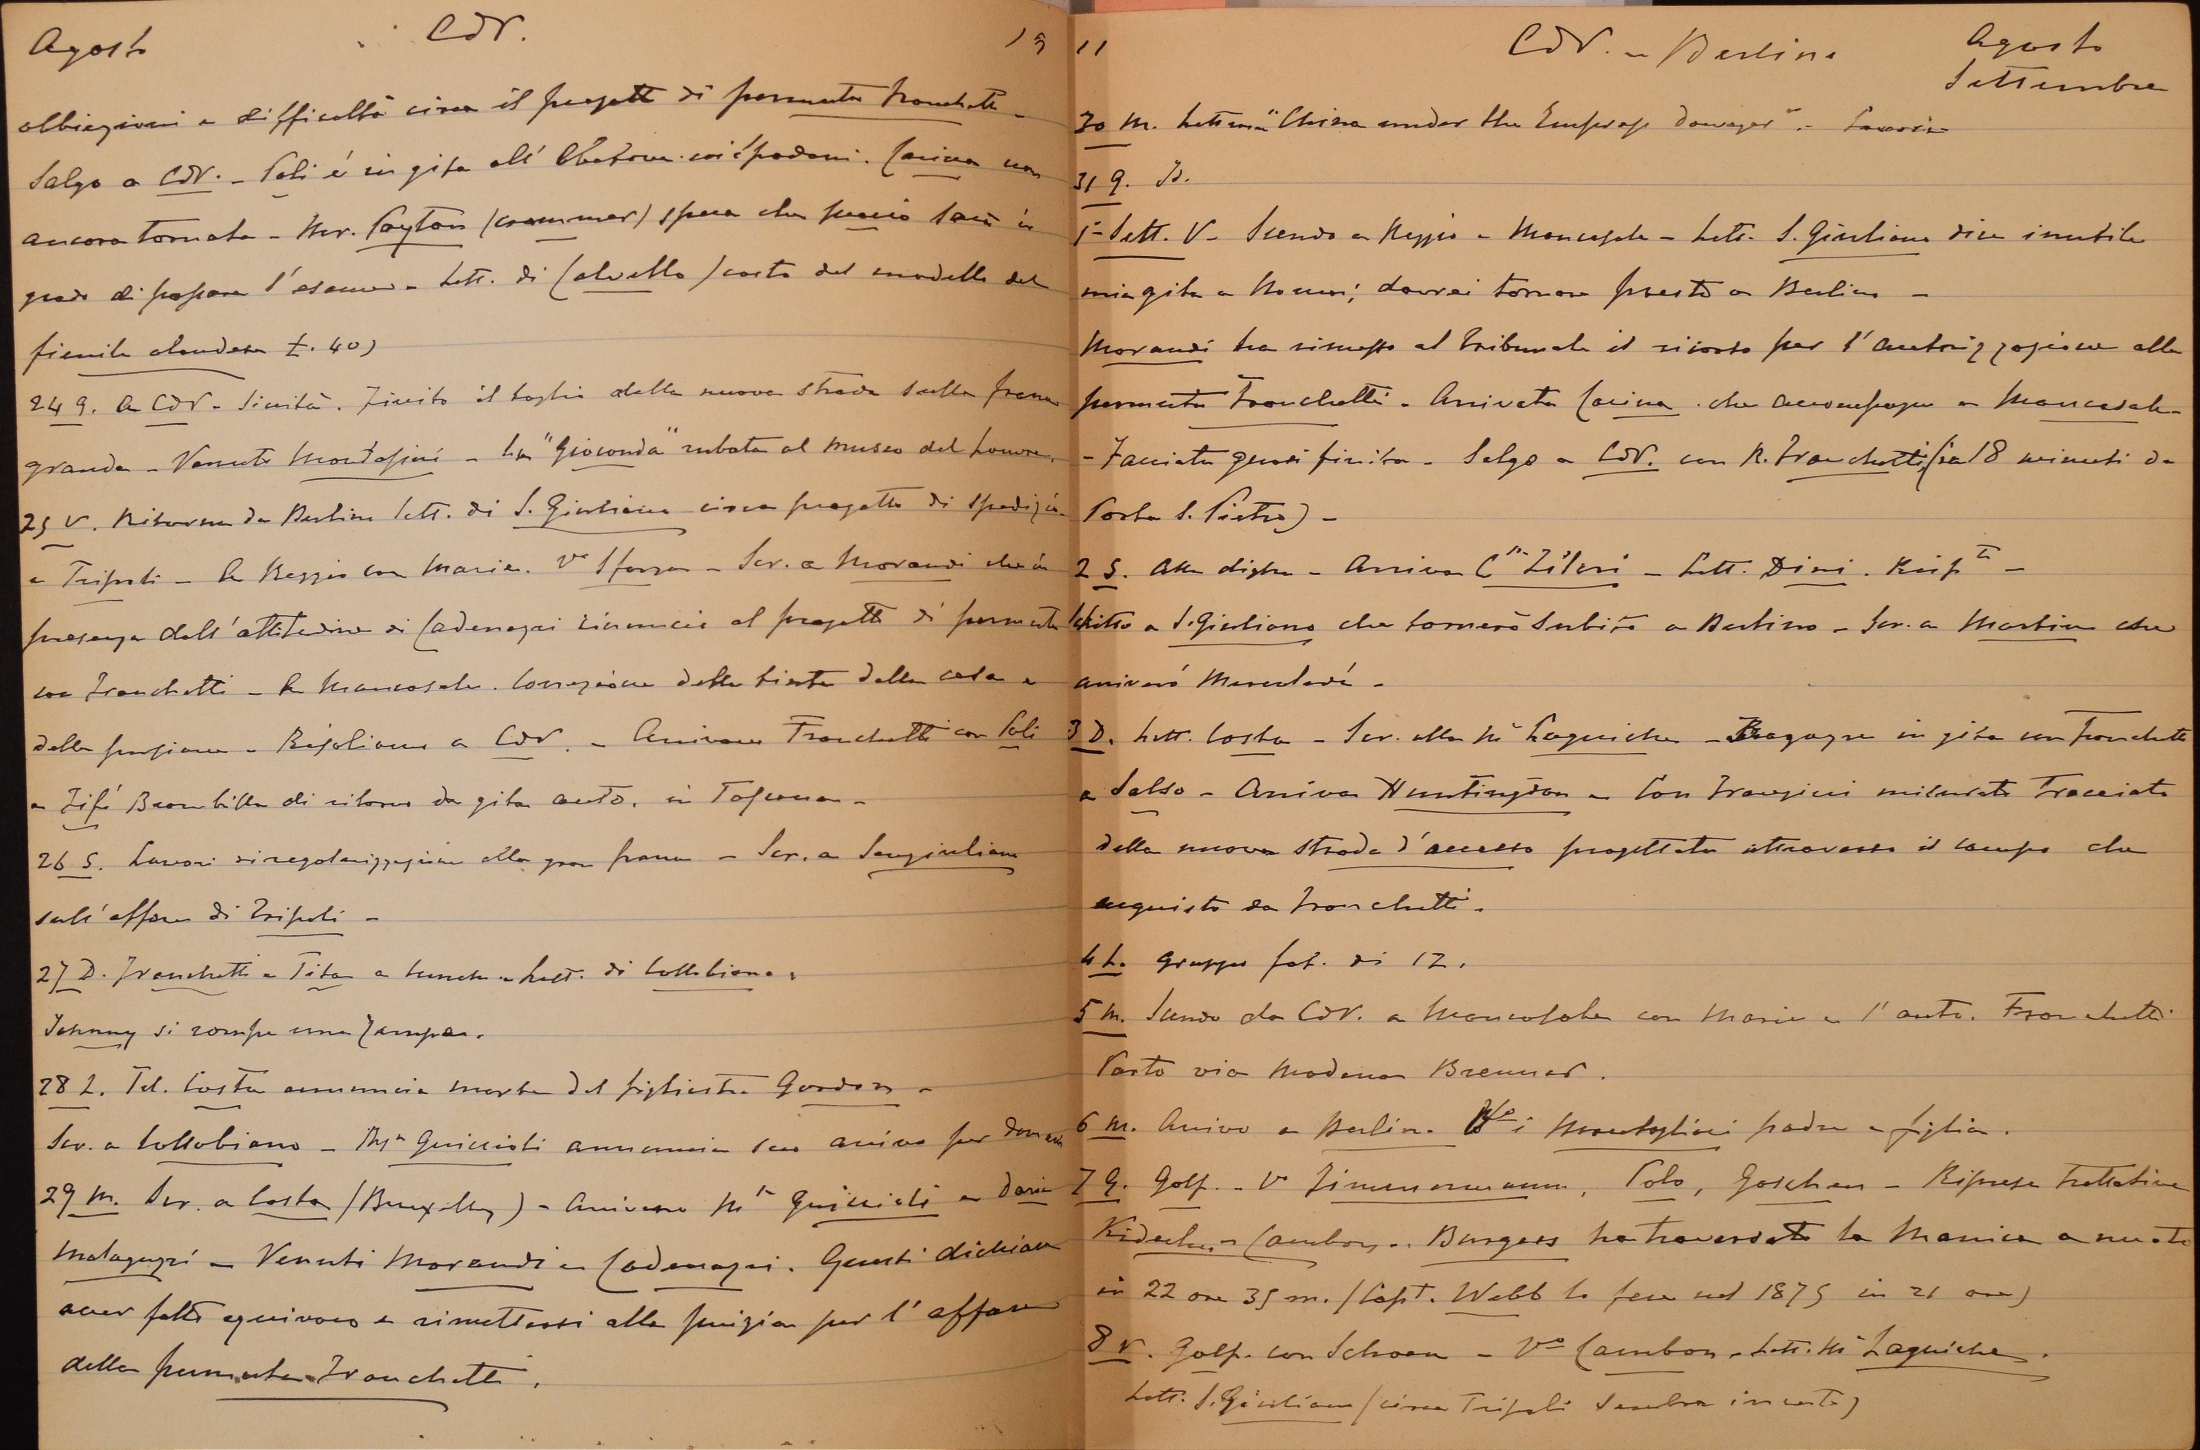 Agosto
CdV.
19
obbiezioni e difficoltà circa il progetto di permuta Franchetti -
Salgo a CdV. - Poli è in gita all' coi Spadoni. Carina non
ancora tornata - Mr. Payton (crammer) spera che sarà in
grado di passare l'esame - Lett. di Calvello (costo del modello del
fienile olandese £. 40)
24 g. A CdV - Siccità. Finito il taglio della nuova strada sulla frana
grande - Venuto - La "Gioconda" rubata al museo del Louvre.
25 V. Ritorna da Berlino lett. di S. Giuliano circa progetto di spediz.
a Tripoli - A Reggio con Maria. Vo Sforza - Scr. a Morandi che in
presenza dell'attitudine di Cadenazzi rinuncio al progetto di permuta
con Franchetti - A Mancasale. Correzione della tinta della casa e
della - Risaliamo a CdV. - Arrivano Franchetti con Poli
e Fifi Brambilla di ritorno da gita auto. in Toscana -
26 S. Lavori di regolarizzazione alla gran frana - Scr. a Sangiuliano
sull'affare di Tripoli -
27 D. Franchetti e Tita a lunch - Lett. di Collobiano.
Johnny si rompe una zampa.
28 L. Tel. Costa annuncia morte del figliastro Gordon -
Scr. a Collobiano - Guiccioli annuncia suo arrivo per domani
29 M. Scr. a Costa (Bruxelles) - Arrivano Guiccioli e Daria
Malaguzzi - Venuti Morandi e Cadenazzi. Questi dichiara
aver fatto equivoco e rimettersi alla perizia per l'affare
della permuta Franchetti.
11
CdV. - Berlino
Agosto
Settembre
30 M. Lettura "China under the Empress dowager" -
31 g. Id.
1° Sett. V - Scendo a Reggio e Mancasale - Lett. S. Giuliano dice inutile
mia gita a Roma; dovrei tornare presto a Berlino -
Morandi ha rimesso al Tribunale il ricorso per l'autorizzazione alla
permuta Franchetti - Arrivata Carina che accompagno a Mancasale -
- Facciata quasi finita - Salgo a CdV. con R. Franchetti (in 18 minuti da
Porta S. Pietro) -
2 S. Alla diga - Arriva Zileri - Lett. Dini.
Scritto a S. Giuliano che tornerò subito a Berlino - Scr. a Martin che
arriverò Mercoledì -
3 D. Lett. Costa - Scr. alla Laguiche - in gita con Franchetti
a Salso - Arriva Huntington - Con Frangini misurato tracciato
della nuova strada d'accesso progettata attraverso il campo che
acquisto da Franchetti.
4 L. Gruppo fot. di 12.
5 M. Scendo da CdV. a Mancasale con Maria e l'auto. Franchetti
Parto via Modena Brenner.
6 M. Arrivo a Berlino. i padre e figlia.
7 G. Golf. - Vo Zimmermann, Polo, Goschen - Riprese trattative
Kiderlen - Cambon - Burgess ha traversato la Manica a nuoto
in 22 ore 35 m. (Capt. Webb lo fece nel 1875 in 21 ore)
8 V. Golf. con Schoen - Vo Cambon - Lett. Laguiche.
Lett. S. Giuliano (circa Tripoli sembra incerto)